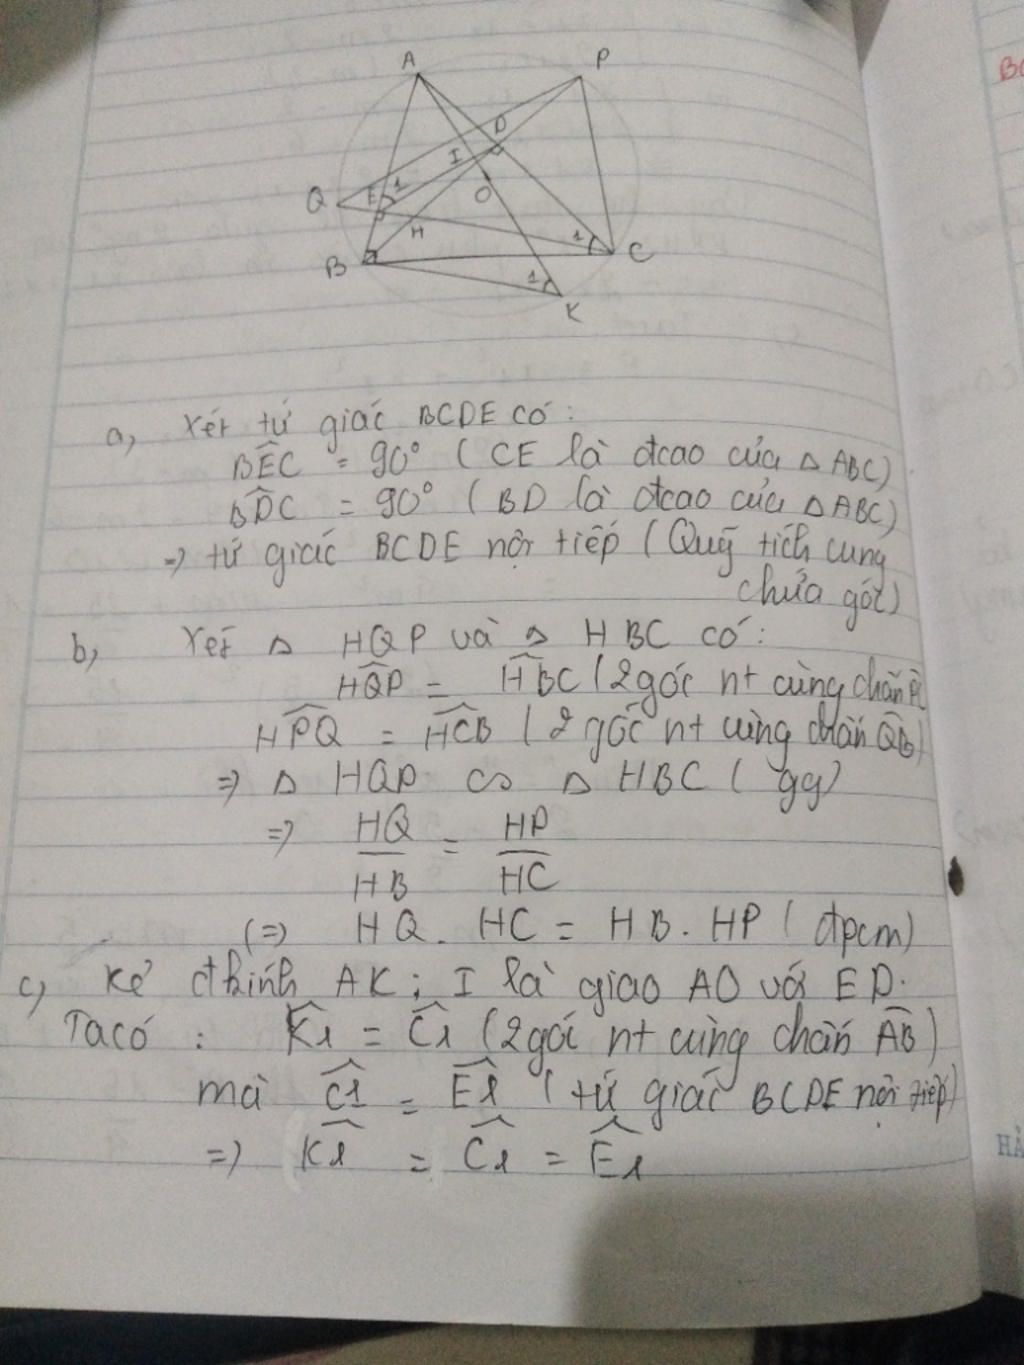 A
P
D
I
Q
E
1
O
H
B
1
C
1
K
a, Xét tứ giác BCDE có:
BÊC = 90° ( CE là đcao của △ ABC)
BD̂C = 90° ( BD là đcao của △ ABC)
=> tứ giác BCDE nội tiếp ( Quỹ tích cung
chứa góc)
b, Xét △ HQP và △ HBC có:
HQ̂P = HB̂C ( 2 góc nt cùng chắn PC
HP̂Q = HĈB ( 2 góc nt cùng chắn QB)
=> △ HQP ∽ △ HBC ( gg)
=> HQ/HB = HP/HC
(=> HQ. HC = HB. HP ( đpcm)
c, Kẻ đkính AK; I là giao AO với ED.
Ta có : K̂1 = Ĉ1 (2 góc nt cùng chắn AB)
mà Ĉ1 = Ê1 ( tứ giác BCDE nội tiếp)
=> K̂1 = Ĉ1 = Ê1
BC
HẢ